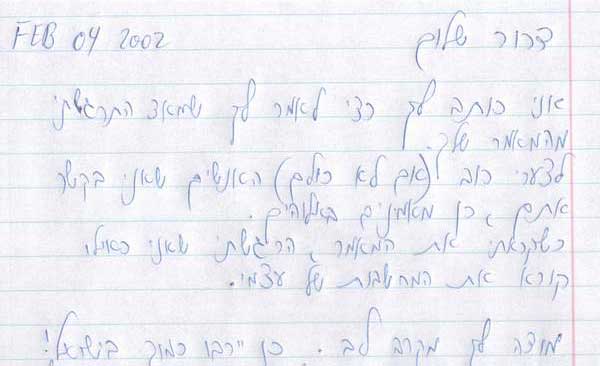 FEB 04 2002
דרור שלום
אני כותב לך כדי לאמר לך שמאד התרגשתי
מהמאמר שלך.
לצערי רוב (אם לא כולם) האנשים שאני בקשר
אתם, כן מאמינים באלוהים.
כשקראתי את המאמר, הרגשתי שאני כאילו
קורא את המחשבות של עצמי.
מודה לך מקרב לב. כן ירבו כמוך בישראל!